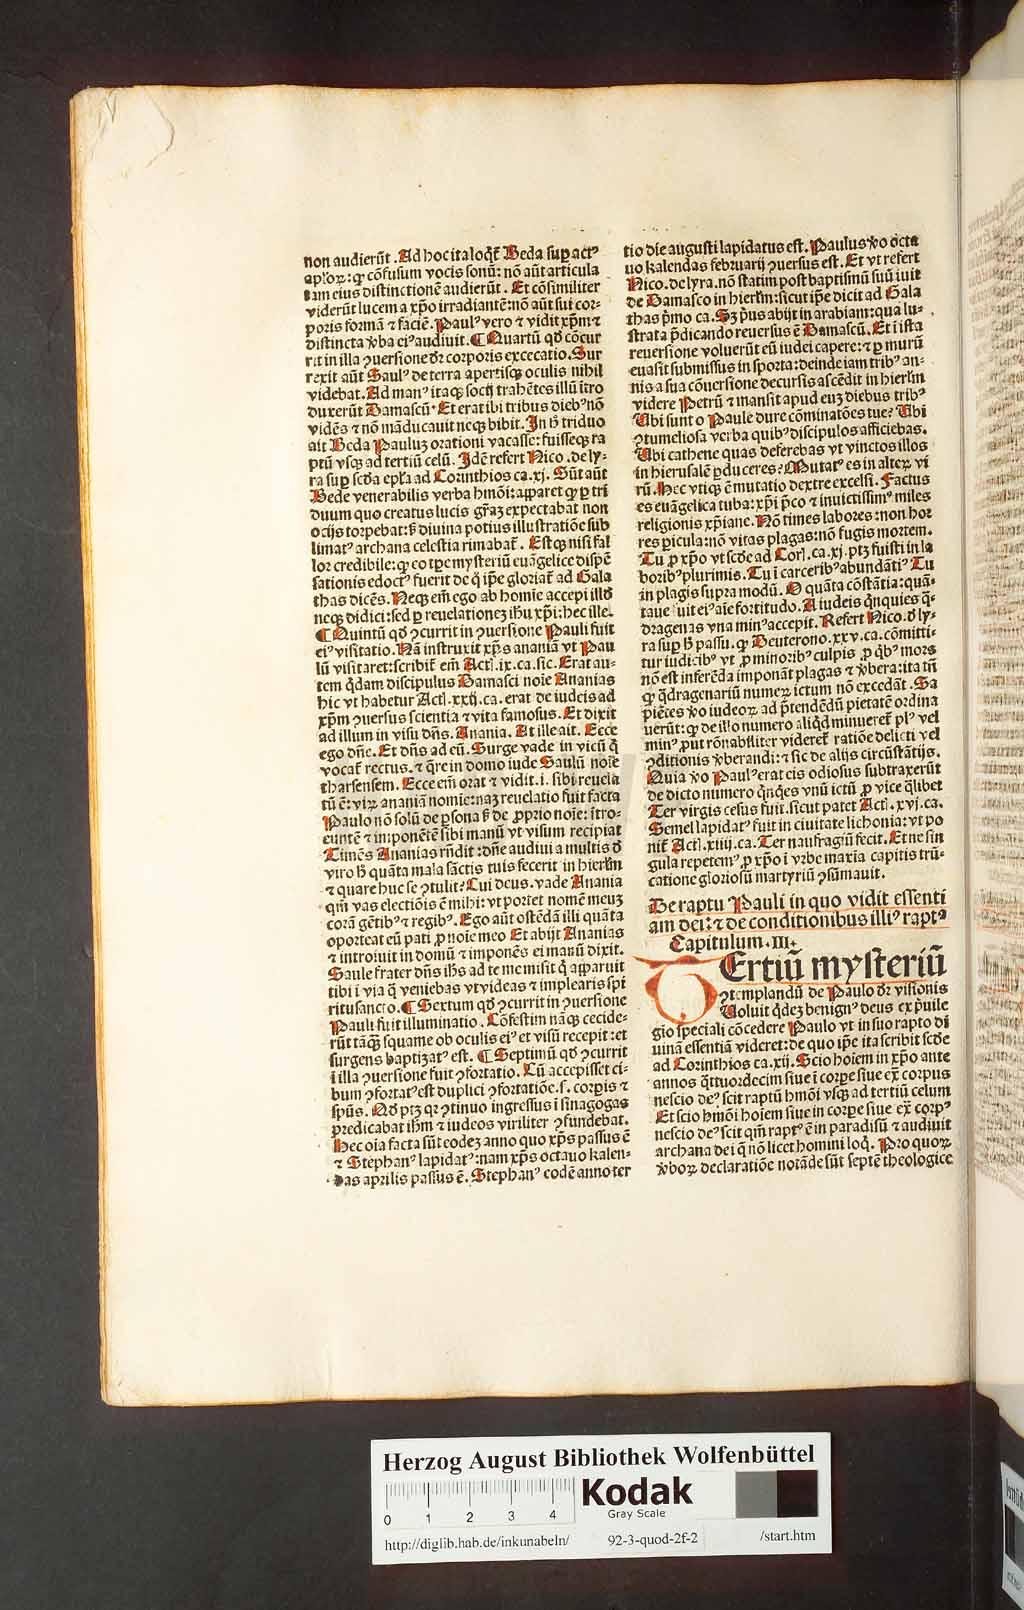 non audierūt. Ad hoc ita loqͭ Beda suꝑ actꝰ
apl'oꝝ: qꝛ cōfusum vocis sonū: nō aūt articula
tam eius distinctionē audierūt. Et cōsimiliter
viderūt lucem a xp̄o irradiantē: nō aūt sui cor-
poris formā ⁊ faciē. Paulꝰ vero ⁊ vidit xp̄m ⁊
distincta ꝟba eiꝰ audiuit. ¶ Quartū qđ cōcur
rit in illa ꝯuersione dr̄ corporis excecatio. Sur
rexit aūt Saulꝰ de terra apertisqꝫ oculis nihil
videbat. Ad manꝰ itaqꝫ socij trahētes illū ītro
duxerūt Damascū. Et erat ibi tribus diebꝰ nō
vidēs ⁊ nō māducauit neqꝫ bibit. In h̄ triduo
ait Beda Pauluꝫ orationi vacasse: fuisseqꝫ ra
ptū vsqꝫ ad tertiū celū. Idē refert Nico. de ly-
ra suꝑ scđa epl'a ad Corinthios ca. xj. Sūt aūt
Bede venerabilis verba hmōi: apparet qꝛ ꝑ tri
duum quo creatus lucis gr̄aꝫ expectabat non
ocijs torpebat: sꝫ diuina potius illustratiōe sub
limatꝰ archana celestia rimabat̄. Estqꝫ nisi fal
lor credibile: qꝛ eo tꝑe mysteriū euāgelice dispē
sationis edoctꝰ fuerit de q̄ ip̄e gloriat̄ ad Gala
thas dicēs. Neqꝫ em̄ ego ab homīe accepi illđ
neqꝫ didici: sed ꝑ reuelationeꝫ ihū xp̄i: hec ille.
¶ Quintū qđ ꝯcurrit in ꝯuersione Pauli fuit
eiꝰ visitatio. Nā instruxit xp̄s ananiā vt Pau
lū visitaret: scribit̄ em̄ Actꝭ. ix. ca. sic. Erat au-
tem q̄dam discipulus Damasci noīe Ananias
hic vt habetur Actꝭ. xxij. ca. erat de iudeis ad
xp̄m ꝯuersus scientia ⁊ vita famosus. Et dixit
ad illum in visu dn̄s. Anania. At ille ait. Ecce
ego dn̄e. Et dn̄s ad eū. Surge vade in vicū q̄
vocat̄ rectus. ⁊ q̄re in domo iude Saulū noīe
tharsensem. Ecce em̄ orat ⁊ vidit. i. sibi reuela
tū ē: viꝝ ananiā nomīe: naꝫ reuelatio fuit facta
Paulo nō solū de ꝑsona sꝫ de ꝓprio noīe: ītro-
euntē ⁊ imponētē sibi manū vt visum recipiat
Timēs Ananias rn̄dit: dn̄e audiui a multis đ
viro h̄ quāta mala sāctis tuis fecerit in hierl'm
⁊ quare huc se ꝯtulit? Cui deus. vade Anania
qm̄ vas electiōis ē mihi: vt portet nomē meuꝫ
corā gētibꝰ ⁊ regibꝰ. Ego aūt ostēdā illi quāta
oporteat eū pati ꝓ noīe meo Et abijt Ananias
⁊ introiuit in domū ⁊ imponēs ei manū dixit.
Saule frater dn̄s ihs̄ ad te me misit q̄ apparuit
tibi ī via q̄ veniebas vt videas ⁊ implearis spī
ritusancto. ¶ Sextum qđ ꝯcurrit in ꝯuersione
Pauli fuit illuminatio. Cōfestim nāqꝫ cecide-
rūt tāqꝫ squame ab oculis eiꝰ et visū recepit: et
surgens baptizatꝰ est. ¶ Septimū qđ ꝯcurrit
ī illa ꝯuersione fuit ꝯfortatio. Cū accepisset ci-
bum ꝯfortatꝰ est duplici ꝯfortatiōe. s. corꝑis ⁊
spūs. Qđ ptꝫ qꝛ ꝯtinuo ingressus ī sinagogas
predicabat ihm̄ ⁊ iudeos viriliter ꝯfundebat.
Hec oīa facta sūt eodeꝫ anno quo xp̄s passus ē
⁊ Stephanꝰ lapidatꝰ: nam xp̄s octauo kalen-
das aprilis passus ē. Stephanꝰ eodē anno ter
tio die augusti lapidatus est. Paulus ꝟo octa
uo kalendas februarij ꝯuersus est. Et vt refert
Nico. de lyra. nō statim post baptismū suū iuit
de Damasco in hierl'm: sicut ip̄e dicit ad Gala
thas p̄mo ca. Sꝫ p̄us abijt in arabiam: qua lu-
strata p̄dicando reuersus ē Damascū. Et ī ista
reuersione voluerūt eū iudei capere: ⁊ ꝑ murū
euasit submissus in sporta: deinde iam tribꝰ an-
nis a sua cōuersione decursis ascēdit in hierl'm
videre Petrū ⁊ mansit apud euꝫ diebus tribꝰ
Ubi sunt o Paule dure cōminatōes tue? Ubi
ꝯtumeliosa verba quibꝰ discipulos afficiebas.
Ubi cathene quas deferebas vt vinctos illos
in hierusalē ꝑduceres? Mutatꝰ es in alteꝝ vi
rū. Hec vtiqꝫ ē mutatio dextre excelsi. Factus
es euāgelica tuba: xp̄i p̄co ⁊ inuictissimꝰ miles
religionis xp̄iane. Nō times labores: non hor
res ꝑicula: nō vitas plagas: nō fugis mortem.
Tu ꝓ xp̄o vt scđe ad Corꝭ. ca. xj. ptꝫ fuisti in la
boribꝰ plurimis. Tu ī carceribꝰ abundātiꝰ Tu
in plagis supra modū. O quāta cōstātia: quā-
ta ue fuit eiꝰ aīe fortitudo. A iudeis q̄nquies q̄-
dragenas vna minꝰ accepit. Refert Nico. đ ly-
ra suꝑ h̄ passu. qꝛ Deuterono. xxv. ca. cōmitti-
tur iudicibꝰ vt ꝓ minoribꝰ culpis ꝓ q̄bꝰ mors
nō est inferēda imponāt plagas ⁊ ꝟbera: ita tn̄
qꝛ q̄dragenariū numeꝝ ictum nō excedāt. Sa
piētes ꝟo iudeoꝝ ad p̄tendēdū pietatē ordina
uerūt: qꝛ de illo numero aliqđ minueret̄ plꝰ vel
minꝰ ꝓut rōnabiliter videret̄ ratiōe delicti vel
ꝯditionis ꝟberandi: ⁊ sic de alijs circūstātijs.
Quia ꝟo Paulꝰ erat eis odiosus subtraxerūt
de dicto numero q̄nqꝫes vnū ictū ꝓ vice q̄libet
Ter virgis cesus fuit. sicut patet Actꝭ. xvj. ca.
Semel lapidatꝰ fuit in ciuitate lichonia: vt po
nit̄ Actꝭ. xiiij. ca. Ter naufragiū fecit. Et ne sin
gula repetem' ꝓ xp̄o ī vrbe maxīa capitis trū-
catione gloriosū martyriū ꝯsūmauit.
De raptu Pauli in quo vidit essenti
am dei: ⁊ de conditionibus illiꝰ raptꝰ
Capitulum. III.
Tertiū mysteriū
ꝯtemplandū de Paulo dr̄ visionis
Uoluit q̄deꝫ benignꝰ deus ex p̄uile
gio speciali cōcedere Paulo vt in suo rapto di
uinā essentiā videret: de quo ip̄e ita scribit scđe
ad Corinthios ca. xij. Scio hoīem in xp̄o ante
annos q̄ttuordecim siue ī corꝑe siue ex̄ corpus
nescio deꝰ scit raptū hmōi vsqꝫ ad tertiū celum
Et scio hmōi hoīem siue in corꝑe siue ex̄ corpꝰ
nescio deꝰ scit qm̄ raptꝰ ē in paradisū ⁊ audiuit
archana dei q̄ nō licet homini loq̄. Pro quoꝝ
ꝟboꝝ declaratiōe notāde sūt septē theologice
Herzog August Bibliothek Wolfenbüttel
0 1 2 3 4
Kodak
Gray Scale
http://diglib.hab.de/inkunabeln/ 92-3-quod-2f-2 /start.htm